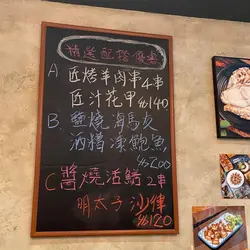 精選配搭優惠
A 匠烤羊肉串4串
匠汁花甲 $140
B. 鹽燒海馬友
酒糟凍鮑魚
$200
C 醬燒活鰻2串
明太子沙律
$120